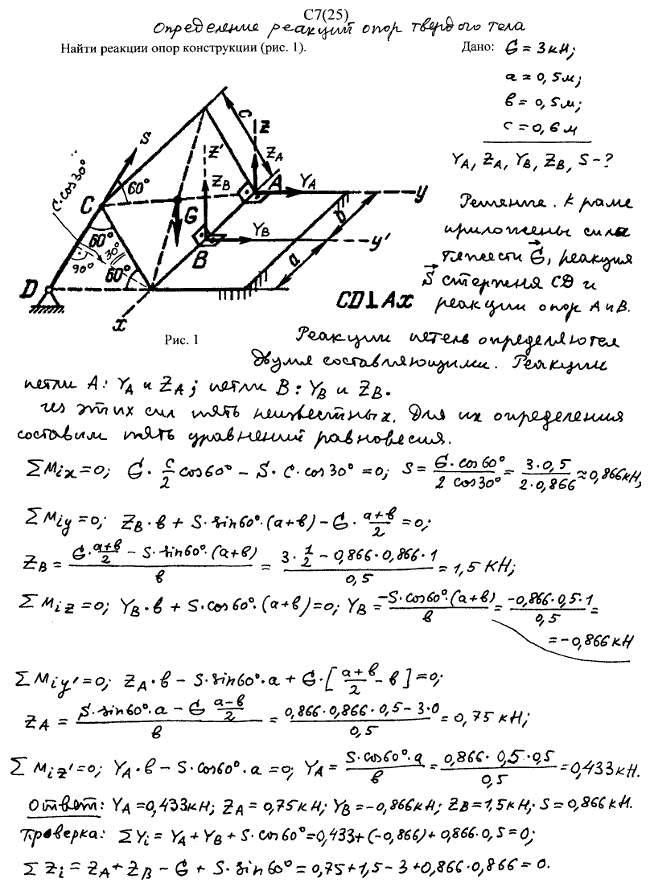 С7(25)
Определение реакций опор твердого тела
Найти реакции опор конструкции (рис. 1).
Дано: G = 3кН;
a = 0,5м;
в = 0,5м;
c = 0,6 м
YA, ZA, YB, ZB, S-?
Решение. К раме
приложены сила
тяжести G⃗, реакция
S⃗ стержня CD и
реакции опор A и B.
S
C·cos30°
C
60°
c
z
z'
ZA
ZB
A
YA
y
G
B
YB
y'
в
a
60°
30°
90°
60°
D
x
CD⊥Ax
Рис. 1
Реакции петель определяются
двумя составляющими. Реакции
петли A: YA и ZA; петли B: YB и ZB.
Из этих сил пять неизвестных. Для их определения
составим пять уравнений равновесия.
ΣMix=0; G·c/2 cos60° - S·C·cos30° =0; S = G·cos60°/2cos30° = 3·0,5/2·0,866 ≈ 0,866кН;
ΣMiy=0; ZB·в + S·sin60°·(a+в) - G·(a+в)/2 = 0;
ZB = (G·(a+в)/2 - S·sin60°·(a+в))/в = (3·1/2 - 0,866·0,866·1)/0,5 = 1,5 КН;
ΣMiz=0; YB·в + S·cos60°·(a+в)=0; YB = -S·cos60°·(a+в)/в = -0,866·0,5·1/0,5 =
= -0,866кН
ΣMiy'=0; ZA·в - S·sin60°·a + G·[(a+в)/2 - в] = 0;
ZA = (S·sin60°·a - G (a-в)/2)/в = (0,866·0,866·0,5 - 3·0)/0,5 = 0,75 кН;
ΣMiz'=0; YA·в - S·cos60°·a = 0; YA = S·cos60°·a/в = 0,866·0,5·0,5/0,5 = 0,433кН.
Ответ: YA=0,433кН; ZA=0,75кН; YB=-0,866кН; ZB=1,5кН; S=0,866кН.
Проверка: ΣYi = YA+YB+S·cos60°=0,433+(-0,866)+0,866·0,5=0;
ΣZi = ZA+ZB - G + S·sin60° = 0,75+1,5-3+0,866·0,866=0.